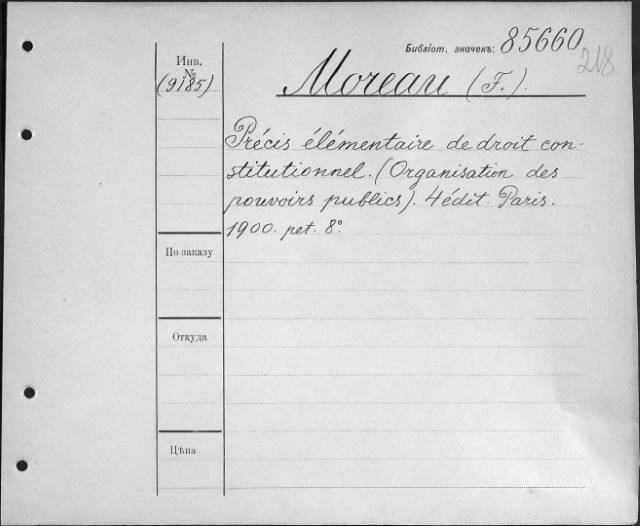 Библіот. значекъ: 85660
218
Инв.
№
(9185)
Moreau (F.).
Précis élémentaire de droit con-
stitutionnel. (Organisation des
pouvoirs publics). 4 édit. Paris.
1900. pet. 8°
По заказу
Откуда
Цѣна